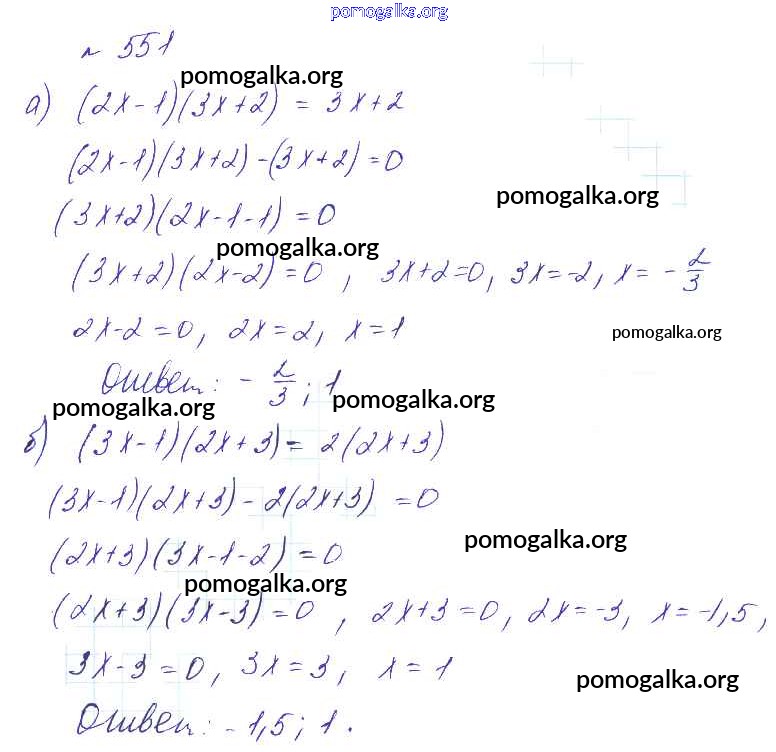 pomogalka.org
№ 551
pomogalka.org
а) (2x-1)(3x+2) = 3x+2
(2x-1)(3x+2)-(3x+2)=0
pomogalka.org
(3x+2)(2x-1-1)=0
pomogalka.org
(3x+2)(2x-2)=0, 3x+2=0, 3x=-2, x= -2/3
2x-2=0, 2x=2, x=1
pomogalka.org
Ответ: -2/3; 1
pomogalka.org pomogalka.org
б) (3x-1)(2x+3)= 2(2x+3)
(3x-1)(2x+3)-2(2x+3) =0
pomogalka.org
(2x+3)(3x-1-2)=0
pomogalka.org
(2x+3)(3x-3)=0, 2x+3=0, 2x=-3, x=-1,5,
3x-3=0, 3x=3, x=1
pomogalka.org
Ответ: -1,5; 1.